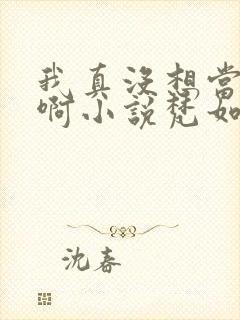 我真没想当
啊小说梵如
沈春